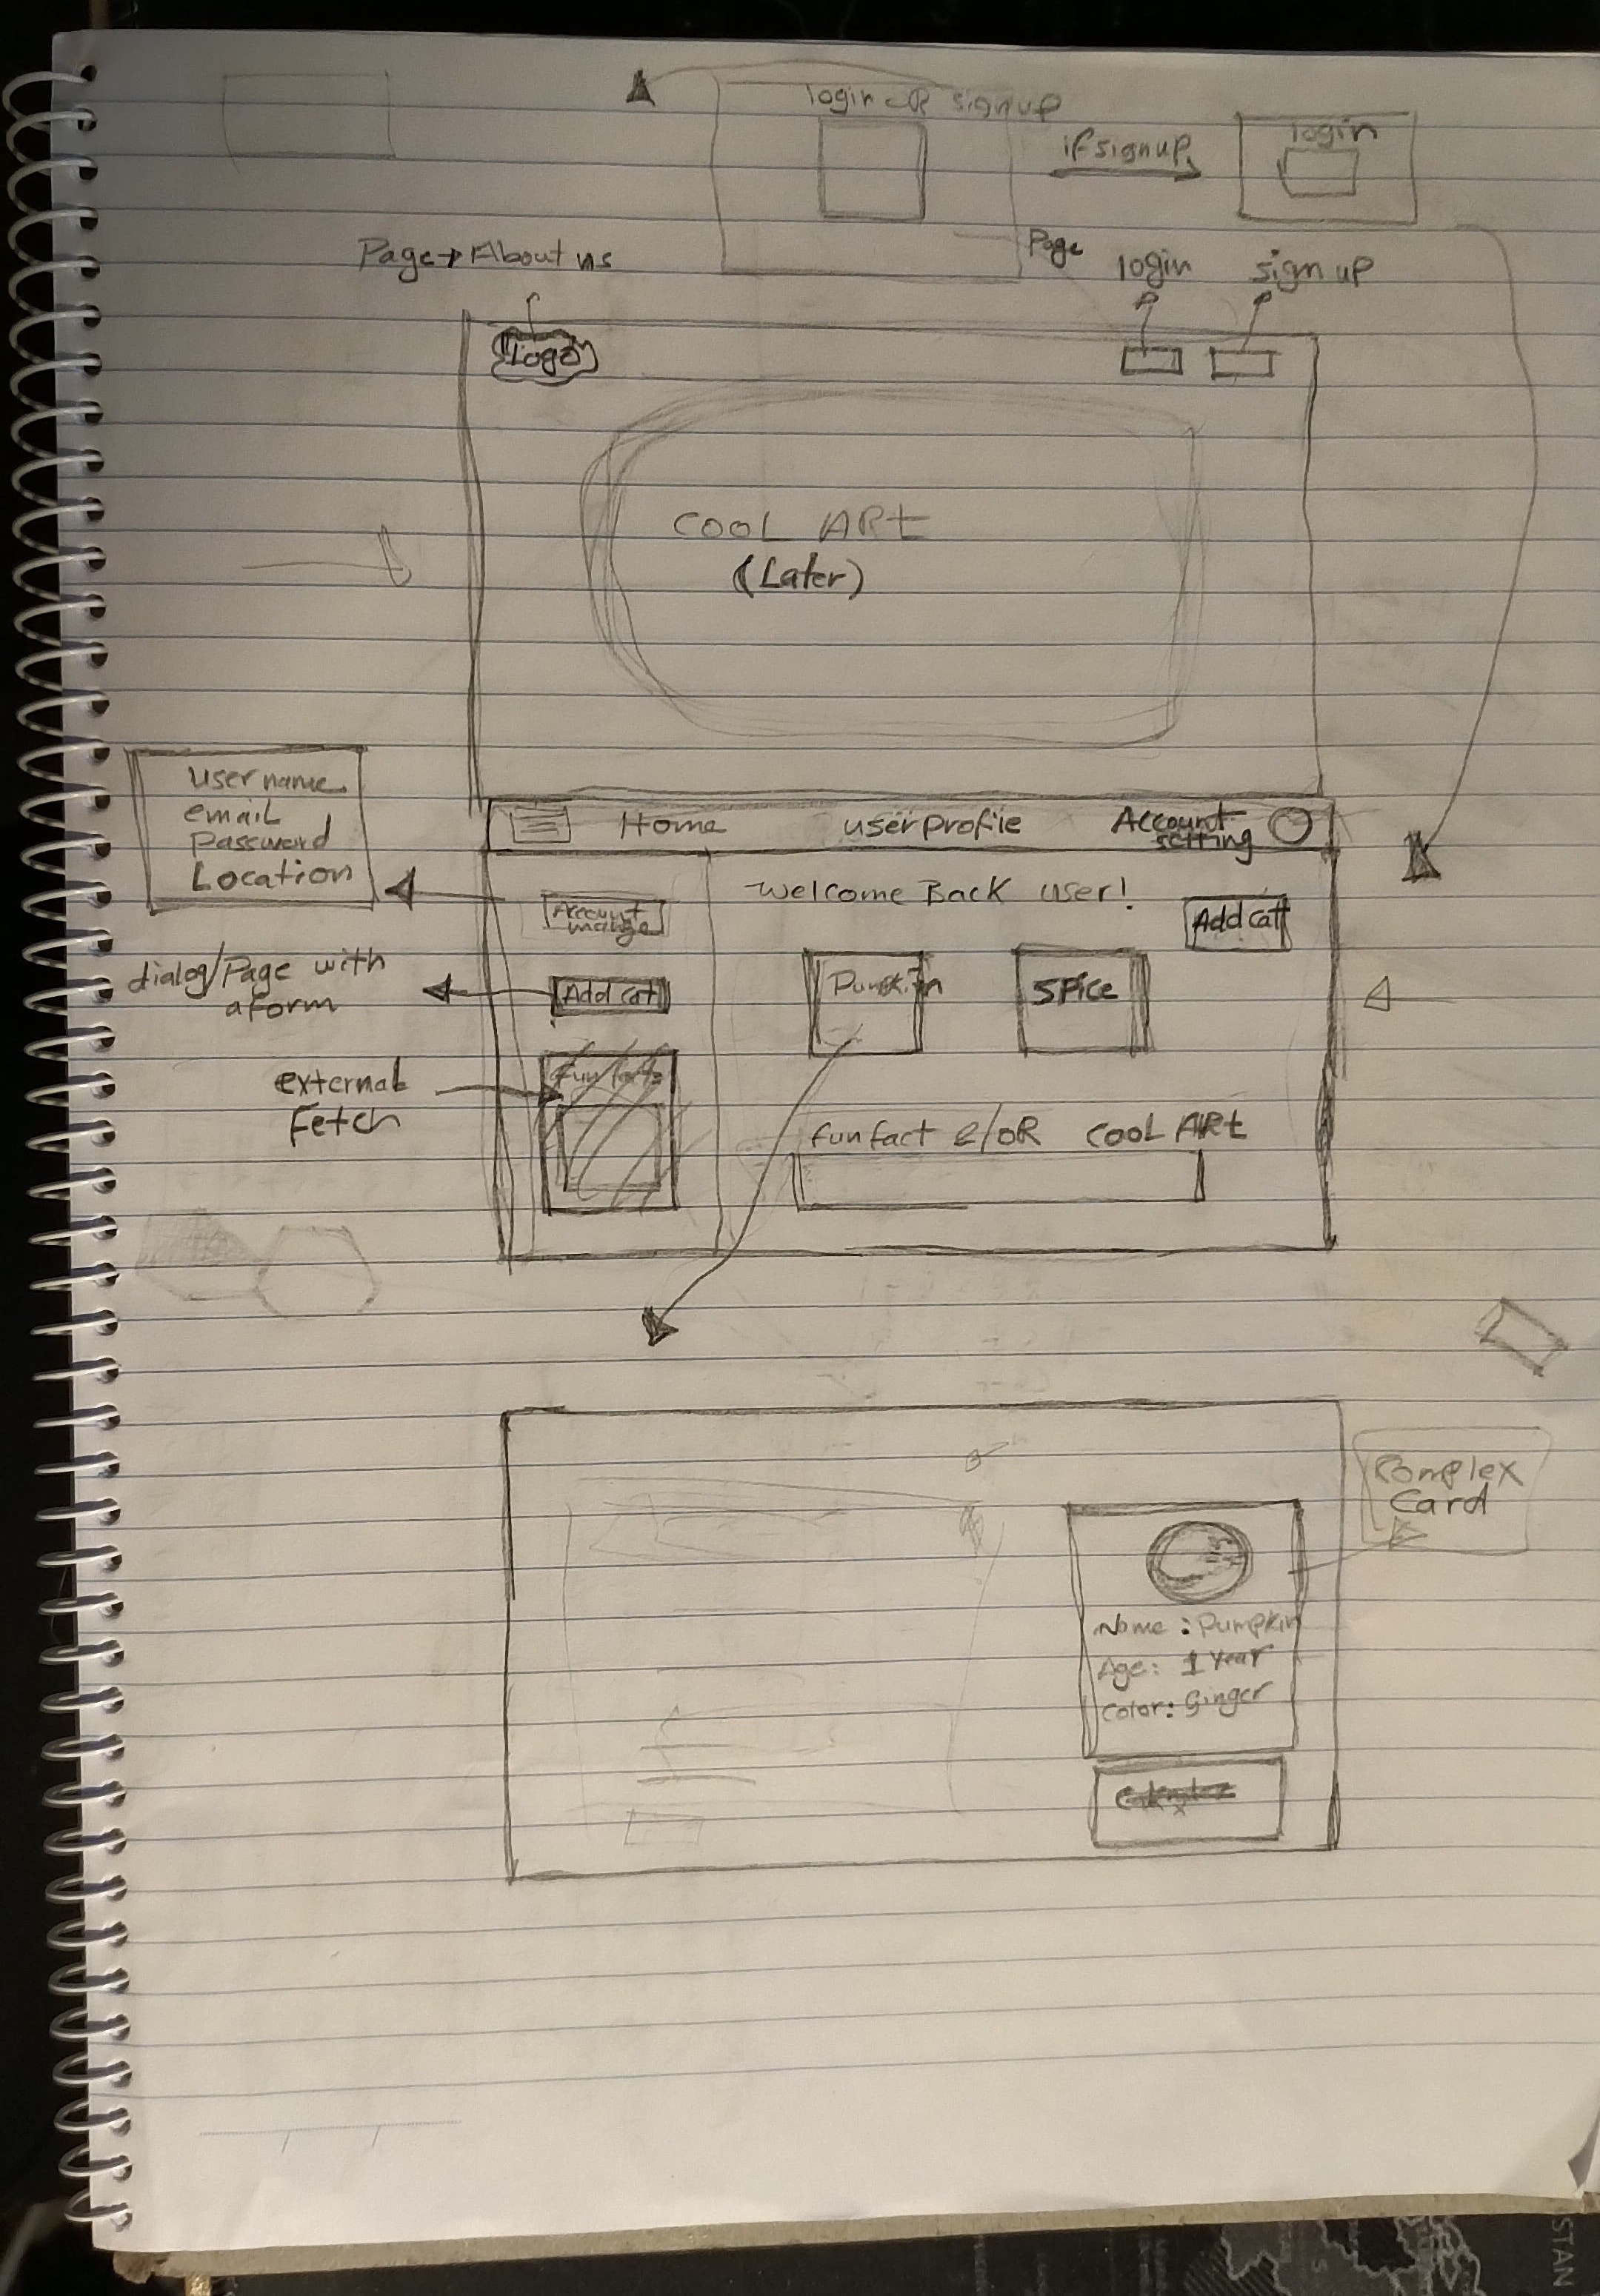 login OR signup
if signup
login
Page
login
sign up
Page → About us
Logo
COOL ARt
(Later)
username
email
Password
Location
Home
userprofile
Account
setting
Account
mange
Welcome Back user!
Add cat
dialog/Page with
a form
Add cat
Pumpkin
SPice
external
Fetch
fun facts
fun fact &/oR COOL ARt
Complex
Card
Name : Pumpkin
Age: 1 Year
Color: Ginger
STAN